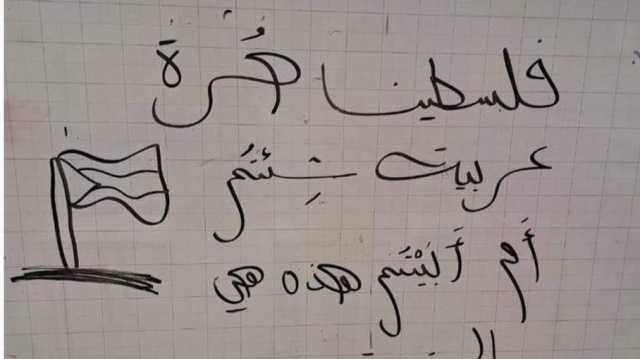 فلسطين حُرة
عربية شِئتُم
أَم أَبَيْتَم هذه هي